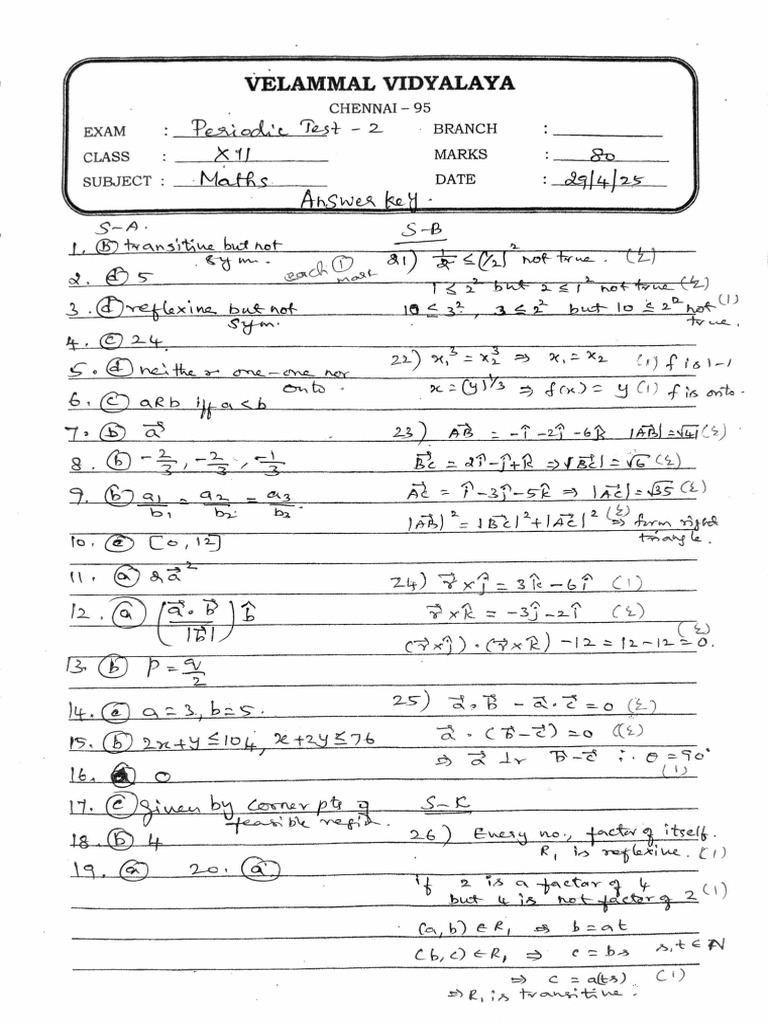 VELAMMAL VIDYALAYA
CHENNAI – 95
EXAM : Periodic Test - 2 BRANCH :
CLASS : XII MARKS : 80
SUBJECT : Maths DATE : 29/4/25
Answer key.
S-A.
1. (b) transitive but not
sym.
2. (d) 5
each (1) mark
3. (d) reflexive but not
sym.
4. (c) 24
5. (d) neither one-one nor
onto.
6. (c) aRb iff a<b
7. (b) a⃗
8. (b) -2/3, -2/3, -1/3
9. (b) a1/b1 = a2/b2 = a3/b3
10. [0,12]
11. (a) 2a⃗²
12. (a) (a⃗·b⃗/|b⃗|) b̂
13. (b) p = q/2
14. a=3, b=5.
15. (b) 2x+y≤104, x+2y≤76
16. 0
17. (c) Given by corner pts of
feasible region.
18. (b) 4
19. (a) 20. (a)
S-B
21) 1/2 ≤ (1/2)² not true. (½)
1≤2² but 2≤1² not true (½)
10≤3², 3≤2² but 10≤2² not (1)
true.
22) x₁³ = x₂³ ⇒ x₁=x₂ (1) f is 1-1
x=(y)^1/3 ⇒ f(x)=y (1) f is onto.
23) AB⃗ = -î-2ĵ-6k̂ |AB⃗|=√41 (½)
BC⃗ = 2î-ĵ+k̂ ⇒ |BC⃗|=√6 (½)
AC⃗ = î-3ĵ-5k̂ ⇒ |AC⃗|=√35 (½)
|AB⃗|² = |BC⃗|²+|AC⃗|² (½) ⇒ form right
triangle.
24) r⃗×ĵ = 3k̂-6î (1)
r⃗×k̂ = -3ĵ-2î (½)
(r⃗×ĵ)·(r⃗×k̂)-12=12-12=0. (½)
25) a⃗·b⃗ - a⃗·c⃗ = 0 (½)
a⃗·(b⃗-c⃗)=0 (½)
⇒ a⃗ ⊥r b⃗-c⃗ ∴ θ=90°
(1)
S-C
26) Every no., factor of itself.
R₁ is reflexive. (1)
if 2 is a factor of 4
but 4 is not factor of 2 (1)
(a,b) ∈ R₁ ⇒ b=at
(b,c) ∈ R₁ ⇒ c=bs s,t∈N
⇒ c=a(ts) (1)
⇒ R₁ is transitive.